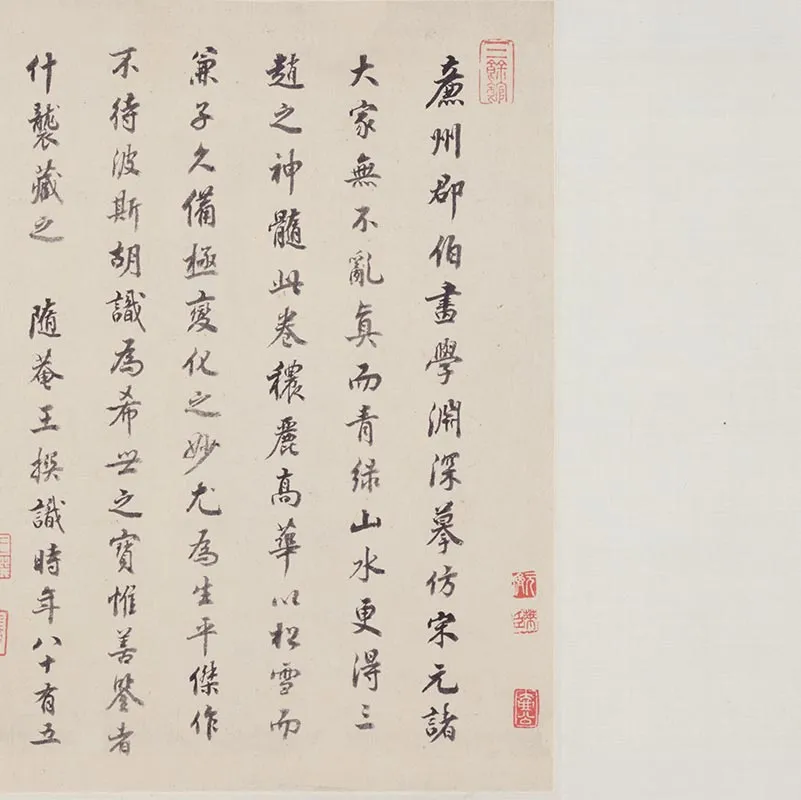 三餘館
廉州郡伯畫學淵深摹仿宋元諸
大家無不亂真而青绿山水更得三
趙之神髓此卷穠麗高華以松雪而
兼子久備極變化之妙尤為生平傑作
不待波斯胡識為希世之寶惟善鑒者
什襲藏之 隨菴王撰識時年八十有五